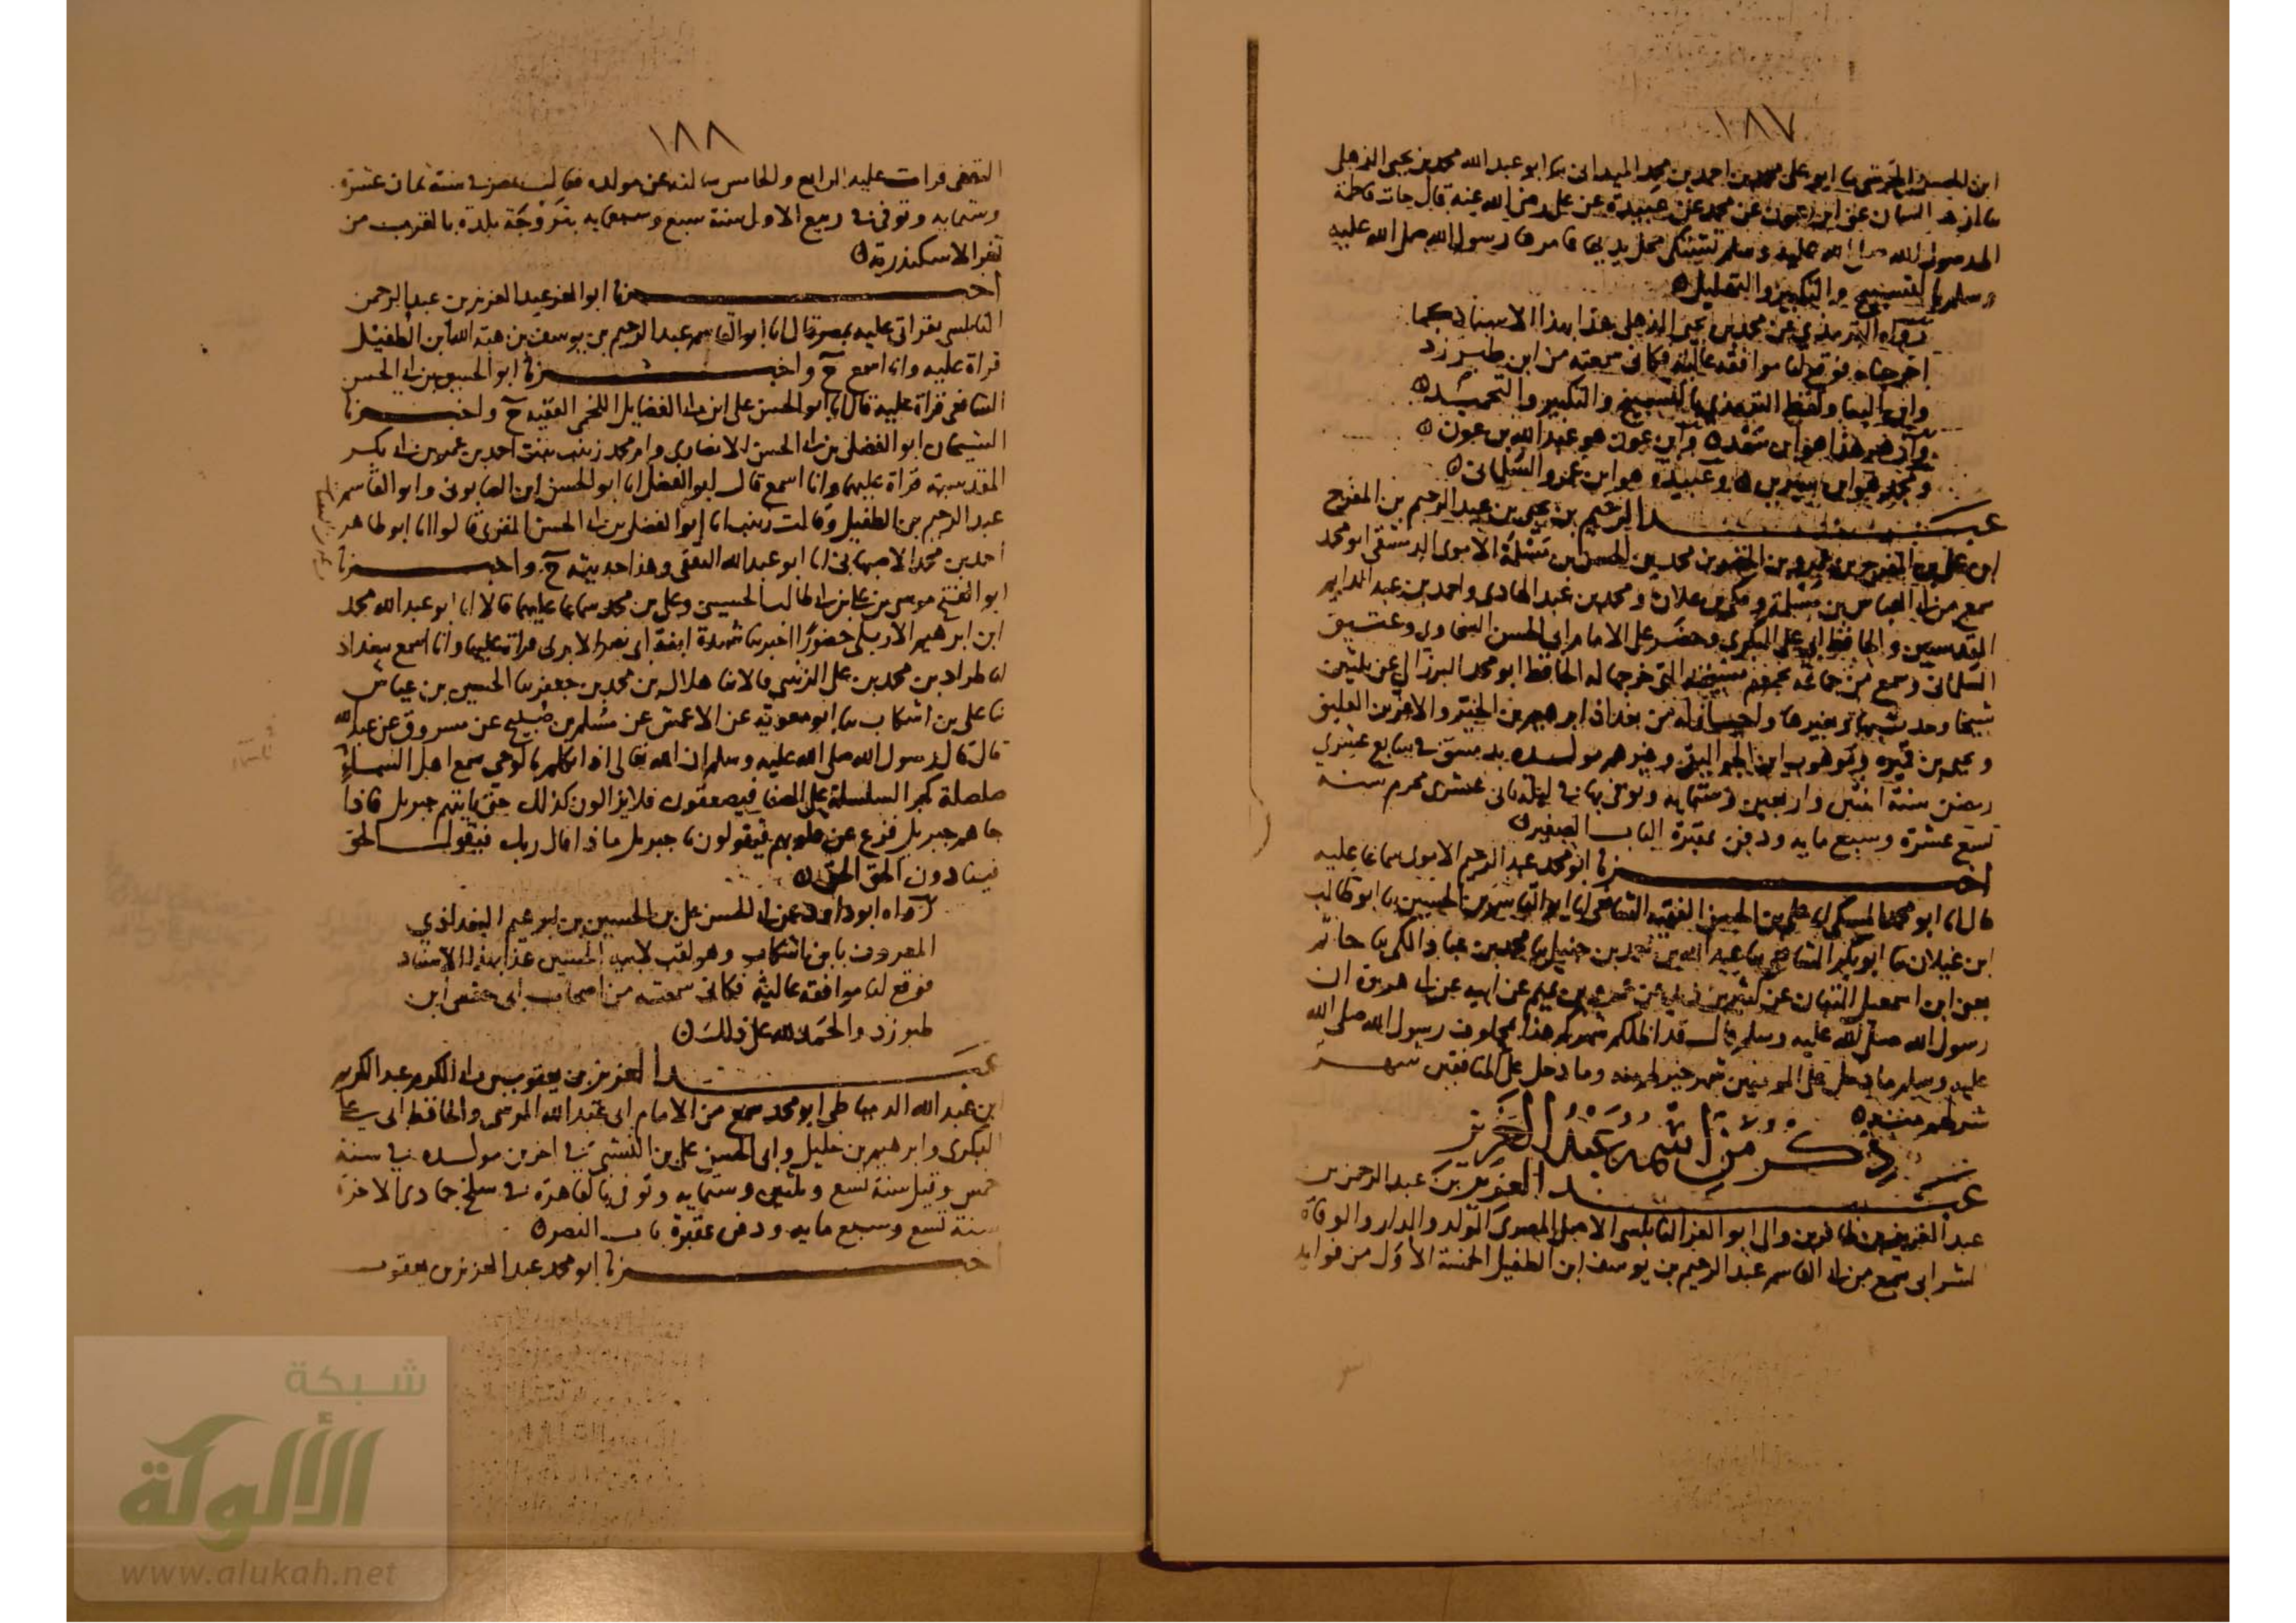 ١٨٧
ابن الحسن الحرشي نا ابو علي محمد بن احمد بن محمد الميداني نا ابو عبد الله محمد بن يحيى الذهلي
نا ازهر السمان عن ابن عون عن محمد عن عبيدة عن علي رضي الله عنه قال جات فاطمة
الى رسول الله صلى الله عليه وسلم تشتكي مجل يديها فامرها رسول الله صلى الله عليه
وسلم بالتسبيح والتكبير والتهليل
رواه الترمذي عن محمد بن يحيى الذهلي هذا بهذا الاسناد كما
اخرجناه فوقع لنا موافقة عالية فكاني سمعته من ابن طبرزد
ولفظ الترمذي بالتسبيح والتكبير والتحميد
وازهر هذا هو ابن سعد وابن عون هو عبد الله بن عون
ومحمد هو ابن سيرين وعبيدة هو ابن عمرو السلماني
عبد الرحيم بن يحيى بن عبد الرحيم بن المفرج
ابن علي بن المفرج بن محمد بن الحسن بن مسلمة الاموي الدمشقي ابو محمد
سمع من ابي العباس بن مسلمة ومكي بن علان ومحمد بن عبد الهادي واحمد بن عبد الدايم
المقدسيين والحافظ ابي علي البكري وحضر على الامام ابي الحسن السخاوي وعتيق
السلماني وسمع من جماعة يجمعهم مشيخته التي خرجها له الحافظ ابو محمد البرزالي عن ثلثين
شيخا وحدث بها وبغيرها واجاز له من بغداد ابرهيم بن الخير والاعز بن العليق
ويحيى بن قميره وموهوب ابن الجواليقي وغيرهم مولده بدمشق في سابع عشري
رمضن سنة اثنتين واربعين وستمايه وتوفي بها في ليلة ثاني عشري محرم سنه
تسع عشرة وسبع مايه ودفن بمقبرة الباب الصغير
اخبرنا ابو محمد عبد الرحيم الاموي سماعا عليه
قال انا ابو محمد المكي انا علي بن الحسن الفقيه الشافعي انا ابو القاسم بن الحصين انا ابو طالب
ابن غيلان نا ابو بكر الشافعي نا عبد الله بن احمد بن حنبل نا محمد بن عباد المكي نا حاتم
يعني ابن اسمعيل عن كثير بن زيد عن عمرو بن تميم عن ابيه عن ابي هريرة ان
رسول الله صلى الله عليه وسلم قال قد اظلكم شهركم هذا بمحلوف رسول الله صلى الله
عليه وسلم ما دخل على المومنين شهر خير لهم منه وما دخل على المنافقين شهر
شر لهم منه
ذكر من اسمه عبد العزيز
عبد العزيز بن عبد الرحمن بن
عبد العزيز بن ابو العز النابلسي الاصل المصري المولد والدار والوفاة
الشرابي سمع من ابي القاسم عبد الرحيم بن يوسف ابن الطفيل الخمسة الاول من فوايد
١٨٨
الثقفي قرات عليه الرابع والخامس سالته عن مولده فقال بمصر في سنة ثمان عشرة
وستمايه وتوفي في ربيع الاول سنة سبع وسبعمايه بتروجة بلدة بالقرب من
ثغر الاسكندرية
اخبرنا ابو العز عبد العزيز بن عبد الرحمن
النابلسي بقراتي عليه بمصر قال انا ابو القاسم عبد الرحيم بن يوسف بن هبة الله ابن الطفيل
قراة عليه وانا اسمع ح واخبرنا ابو الحسين بن ابي الحسن
الشافعي قراة عليه قال انا ابو الحسن علي ابن ابي الفضايل اللخمي الفقيه ح واخبرنا
الشيخان ابو الفضل بن ابي الحسن الانصاري وام محمد زينب بنت احمد بن عمر بن ابي بكر
المقدسيه قراة عليهما وانا اسمع قال ابو الفضل انا ابو الحسن ابن الصابوني وابو القاسم
عبد الرحيم بن الطفيل وقالت زينب انا ابو الفضل بن ابي الحسن المقري قالوا انا ابو طاهر
احمد بن محمد الاصبهاني انا ابو عبد الله الثقفي وهذا حديثه ح واخبرنا
ابو الفتح موسى بن علي بن ابي طالب الحسيني وعلي بن محمد سماعا عليهما قالا انا ابو عبد الله محمد
ابن ابرهيم الاربلي حضورا اخبرتنا شهدة ابنة ابي نصر الابري قراة عليها وانا اسمع ببغداد
انا طراد بن محمد بن علي الزينبي قالا نا هلال بن محمد بن جعفر نا الحسين بن عياش
نا علي بن اشكاب نا ابو معوية عن الاعمش عن مسلم بن صبيح عن مسروق عن عبد الله
قال قال رسول الله صلى الله عليه وسلم ان الله تعالى اذا تكلم بالوحي سمع اهل السماء
صلصلة كجر السلسلة على الصفا فيصعقون فلا يزالون كذلك حتى ياتيهم جبريل فاذا
جاهم جبريل فزع عن قلوبهم فيقولون يا جبريل ماذا قال ربك فيقول الحق
فينادون الحق الحق
رواه ابو داود عن ابي الحسن علي بن الحسين بن ابرهيم البغدادي
المعروف بابن اشكاب وهو لقب لابيه الحسين هذا بهذا الاسناد
فوقع لنا موافقة عالية فكاني سمعته من اصحاب ابي حفص ابن
طبرزد والحمد لله على ذلك
عبد العزيز بن يعقوب بن ابي الكرم عبد الكريم
ابن عبد الله الدمياطي ابو محمد سمع من الامام ابي عبد الله المرسي والحافظ ابي علي
البكري وابرهيم بن خليل وابي الحسن علي بن النشبي في اخرين مولده في سنة
خمس وقيل سنة تسع وثلثين وستمايه وتوفي بالقاهرة في سلخ جمادى الاخرة
سنة تسع وسبع مايه ودفن بمقبرة باب النصر
اخبرنا ابو محمد عبد العزيز بن يعقوب
شبكة
الألوكة
www.alukah.net